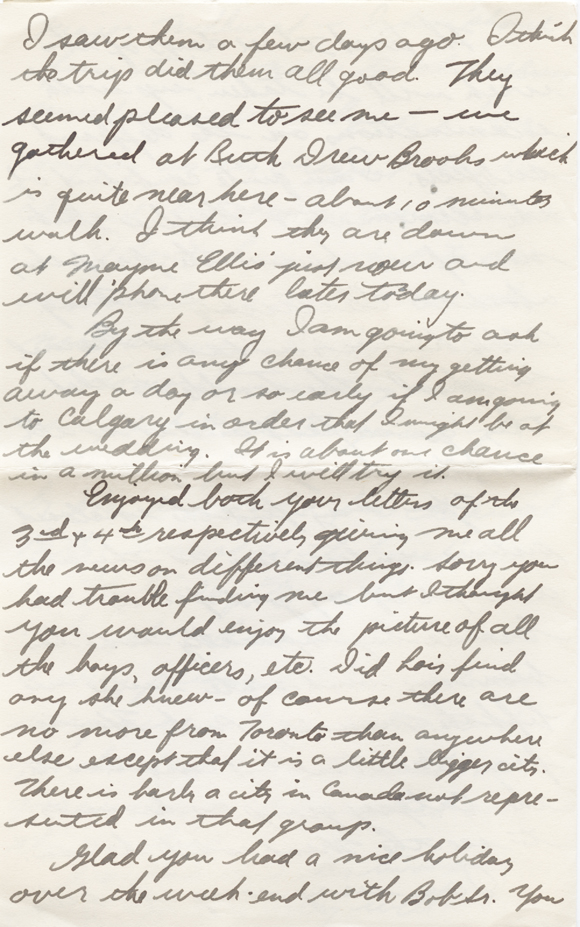 I saw them a few days ago. I think
the trip did them all good. They
seemed pleased to see me — we
gathered at Ruth Drew Brooks which
is quite near here - about 10 minutes
walk. I think they are down
at Mayme Ellis' just now and
will 'phone there later today.
By the way I am going to ask
if there is any chance of my getting
away a day or so early if I am going
to Calgary in order that I might be at
the wedding. It is about one chance
in a million but I will try it.
Enjoyed both your letters of the
3rd & 4th respectively giving me all
the news on different things. Sorry you
had trouble finding me but I thought
you would enjoy the picture of all
the boys, officers, etc. Did Lois find
any she knew - of course there are
no more from Toronto than anywhere
else except that it is a little bigger city.
There is hardly a city in Canada not repre-
sented in that group.
Glad you had a nice holiday
over the week-end with Bob Sr. You